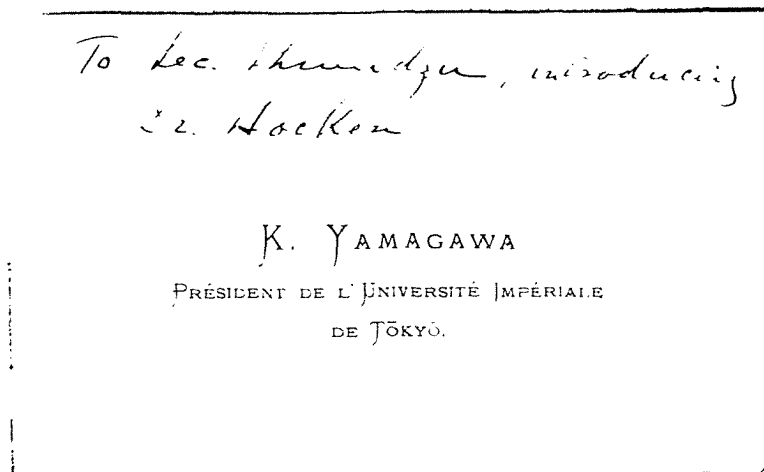 To Sec. Shimidzu, introducing
Dr. Hocken
K. YAMAGAWA
PRÉSIDENT DE L'UNIVERSITÉ IMPÉRIALE
DE TŌKYŌ.